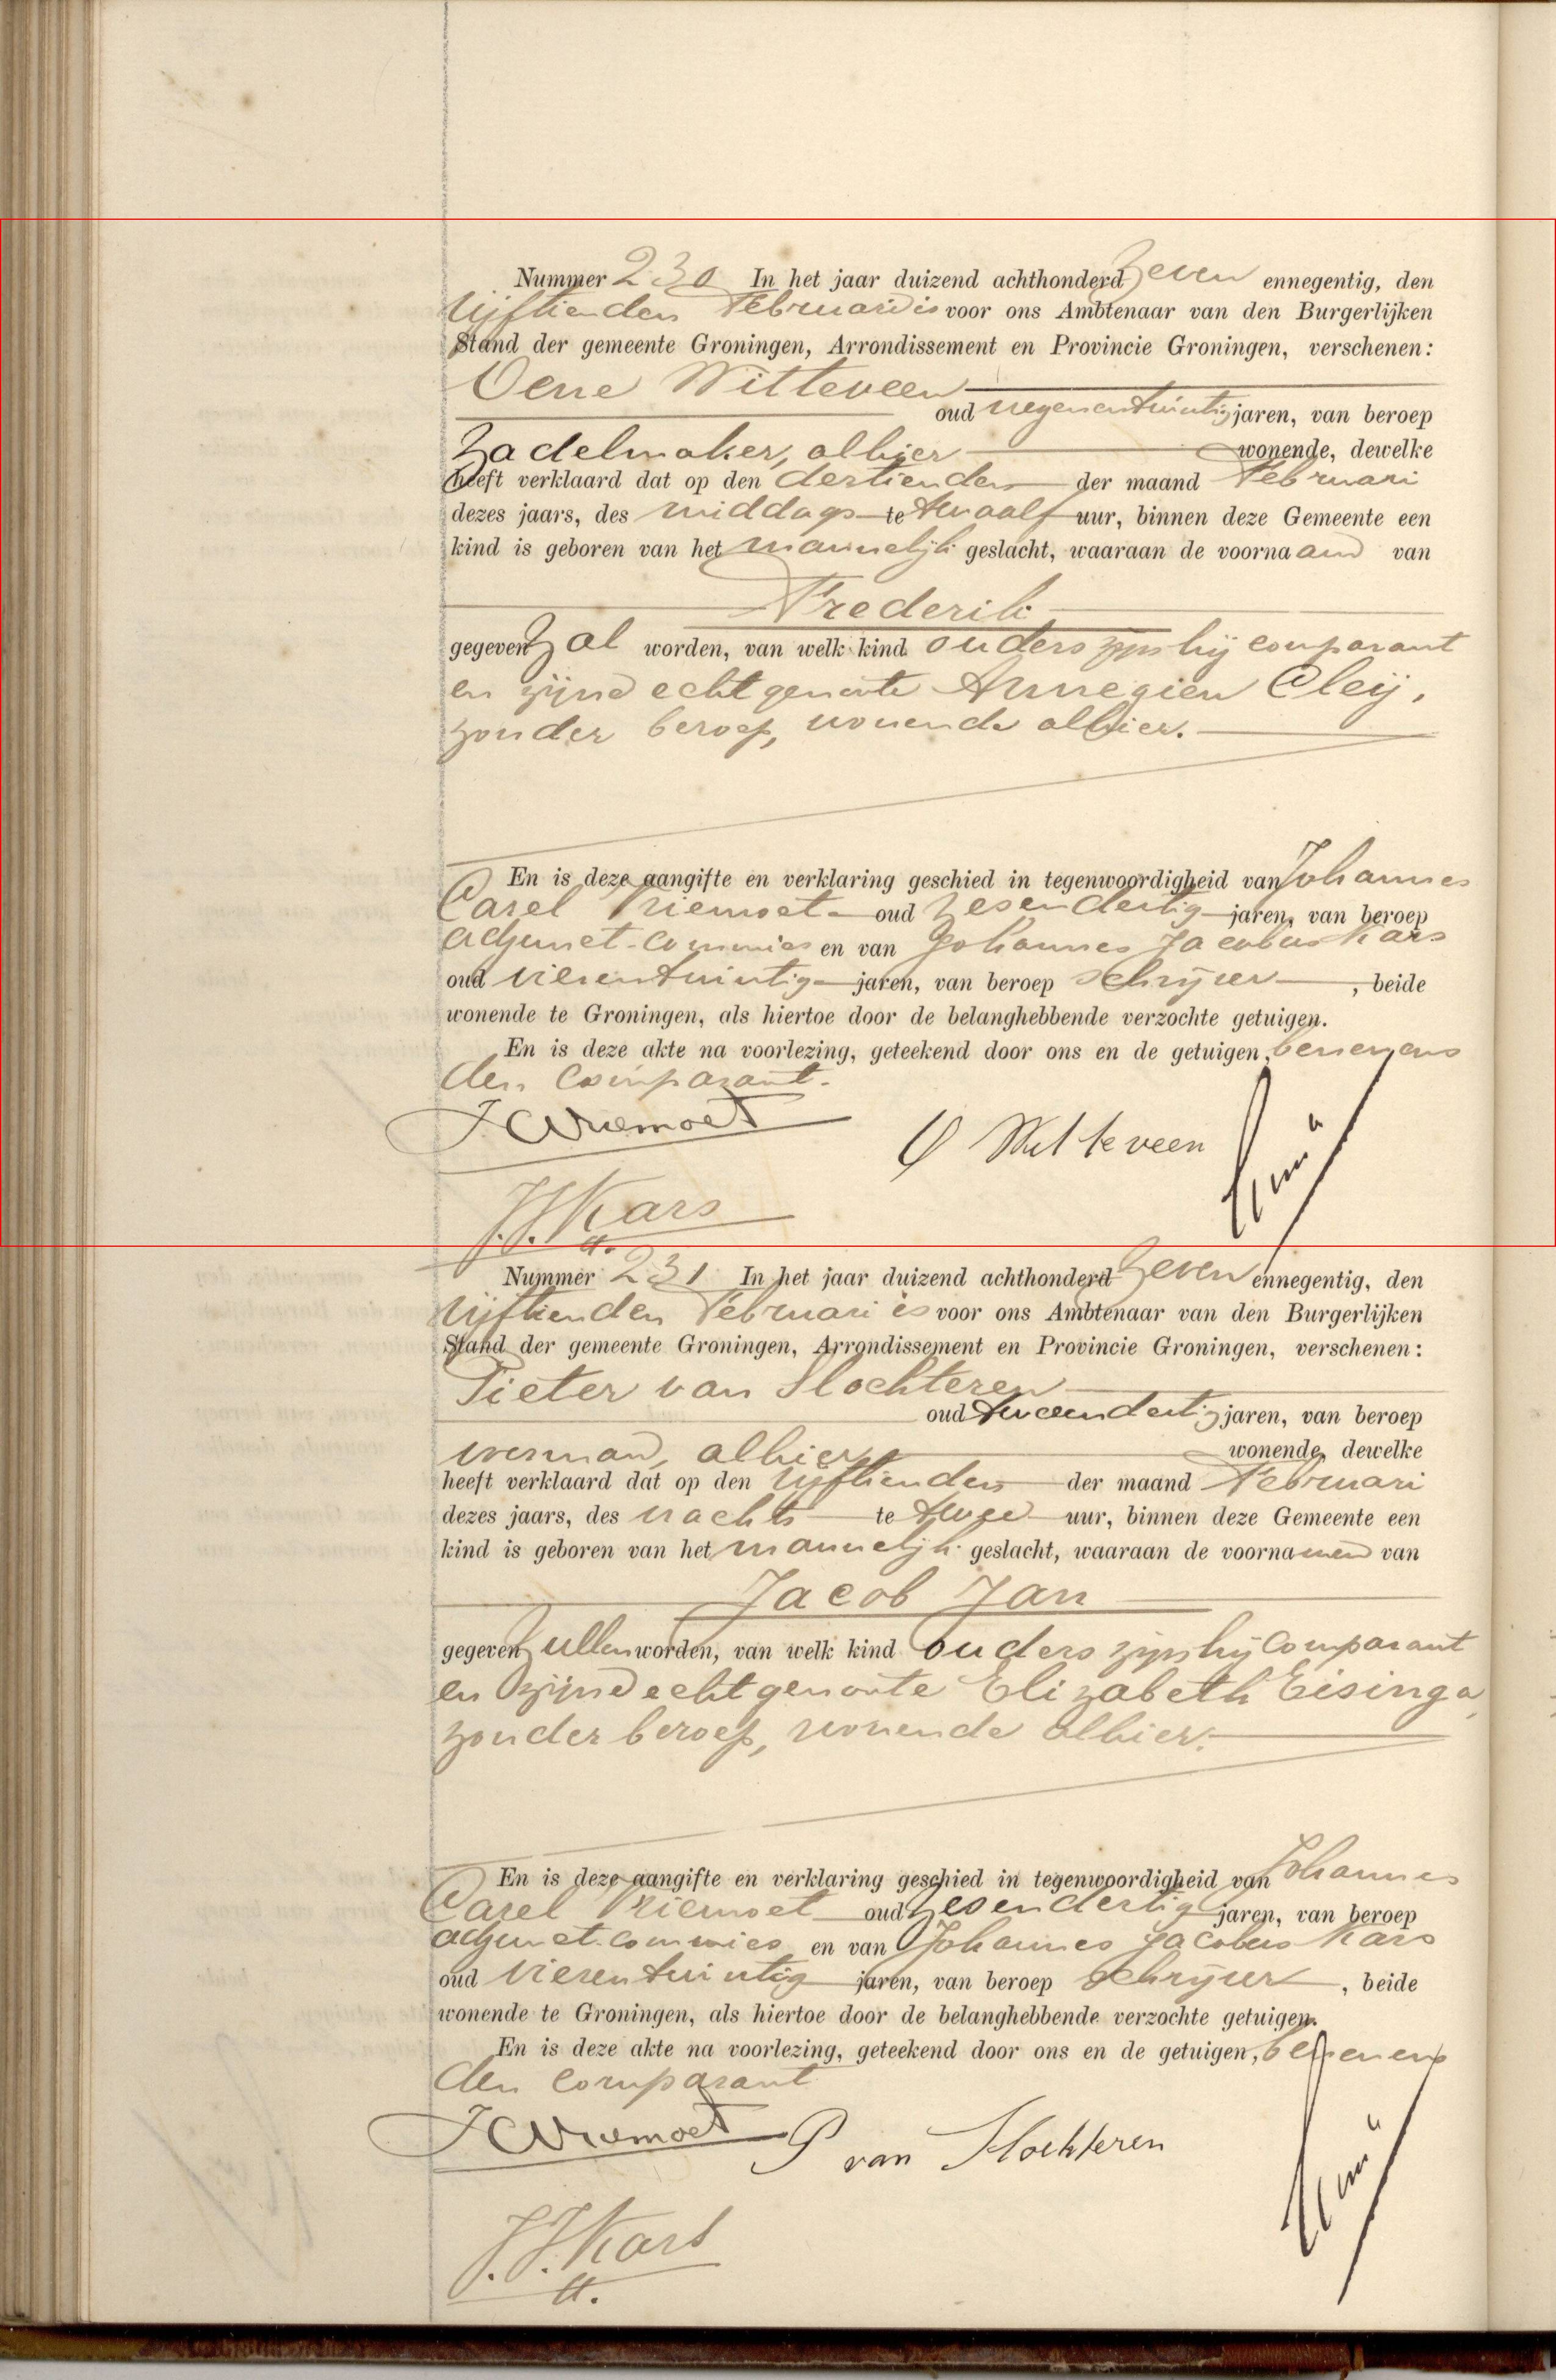 Nummer 230 In het jaar duizend achthonderd zeven ennegentig, den
vijftienden Februari is voor ons Ambtenaar van den Burgerlijken
Stand der gemeente Groningen, Arrondissement en Provincie Groningen, verschenen:
Oene Witteveen
oud negenentwintig jaren, van beroep
zadelmaker, alhier wonende, dewelke
heeft verklaard dat op den dertienden der maand Februari
dezes jaars, des middags te twaalf uur, binnen deze Gemeente een
kind is geboren van het mannelijk geslacht, waaraan de voornaam van
Frederik
gegeven zal worden, van welk kind ouders zijn hij comparant
en zijne echtgenoote Annegien Cleij,
zonder beroep, wonende alhier.
En is deze aangifte en verklaring geschied in tegenwoordigheid van Johannes
Carel Vriemoet oud zesendertig jaren, van beroep
adjunct-commies en van Johannes Jacobus Kars
oud vierentwintig jaren, van beroep schrijver, beide
wonende te Groningen, als hiertoe door de belanghebbende verzochte getuigen.
En is deze akte na voorlezing, geteekend door ons en de getuigen, benevens
den comparant.
JCVriemoet O Witteveen
J.J. Kars
Nummer 231 In het jaar duizend achthonderd zeven ennegentig, den
vijftienden Februari is voor ons Ambtenaar van den Burgerlijken
Stand der gemeente Groningen, Arrondissement en Provincie Groningen, verschenen:
Pieter van Slochteren
oud tweeendertig jaren, van beroep
voerman, alhier wonende, dewelke
heeft verklaard dat op den vijftienden der maand Februari
dezes jaars, des nachts te twee uur, binnen deze Gemeente een
kind is geboren van het mannelijk geslacht, waaraan de voornamen van
Jacob Jan
gegeven zullen worden, van welk kind ouders zijn hij comparant
en zijne echtgenoote Elizabeth Eisinga,
zonder beroep, wonende alhier.
En is deze aangifte en verklaring geschied in tegenwoordigheid van Johannes
Carel Vriemoet oud zesendertig jaren, van beroep
adjunct-commies en van Johannes Jacobus Kars
oud vierentwintig jaren, van beroep schrijver, beide
wonende te Groningen, als hiertoe door de belanghebbende verzochte getuigen.
En is deze akte na voorlezing, geteekend door ons en de getuigen, benevens
den comparant
JCVriemoet P van Slochteren
J.J. Kars